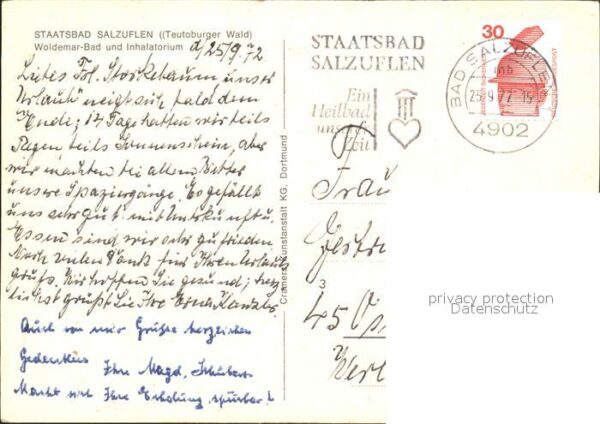 STAATSBAD SALZUFLEN ((Teutoburger Wald)
Woldemar-Bad und Inhalatorium d/25/9.72
Liebes Frl. Storkebaum, unser
Urlaub neigt sich bald dem
Ende; 12 Tage hatten wir teils
Regen, teils Sonnenschein, aber
wir machten bei allem Wetter
unsere Spaziergänge. Es gefällt
uns sehr gut. mit Unterkunft u.
Essen sind wir sehr zufrieden.
Noch vielen Dank für Ihren Urlaubs
gruß. Wir hoffen Sie gesund; herz
lichst grüßt Sie Ihre Erna
Auch von mir Grüße herzlichen
Gedenkens Ihre Magd. Schubert
Macht sich Ihre Erholung spürbar?
Cramers Kunstanstalt KG. Dortmund
STAATSBAD
SALZUFLEN
Ein
Heilbad
unserer
Zeit
30
BAD SALZUFLEN
mb
25.9.72
4902
Frau
3
45
privacy protection
Datenschutz